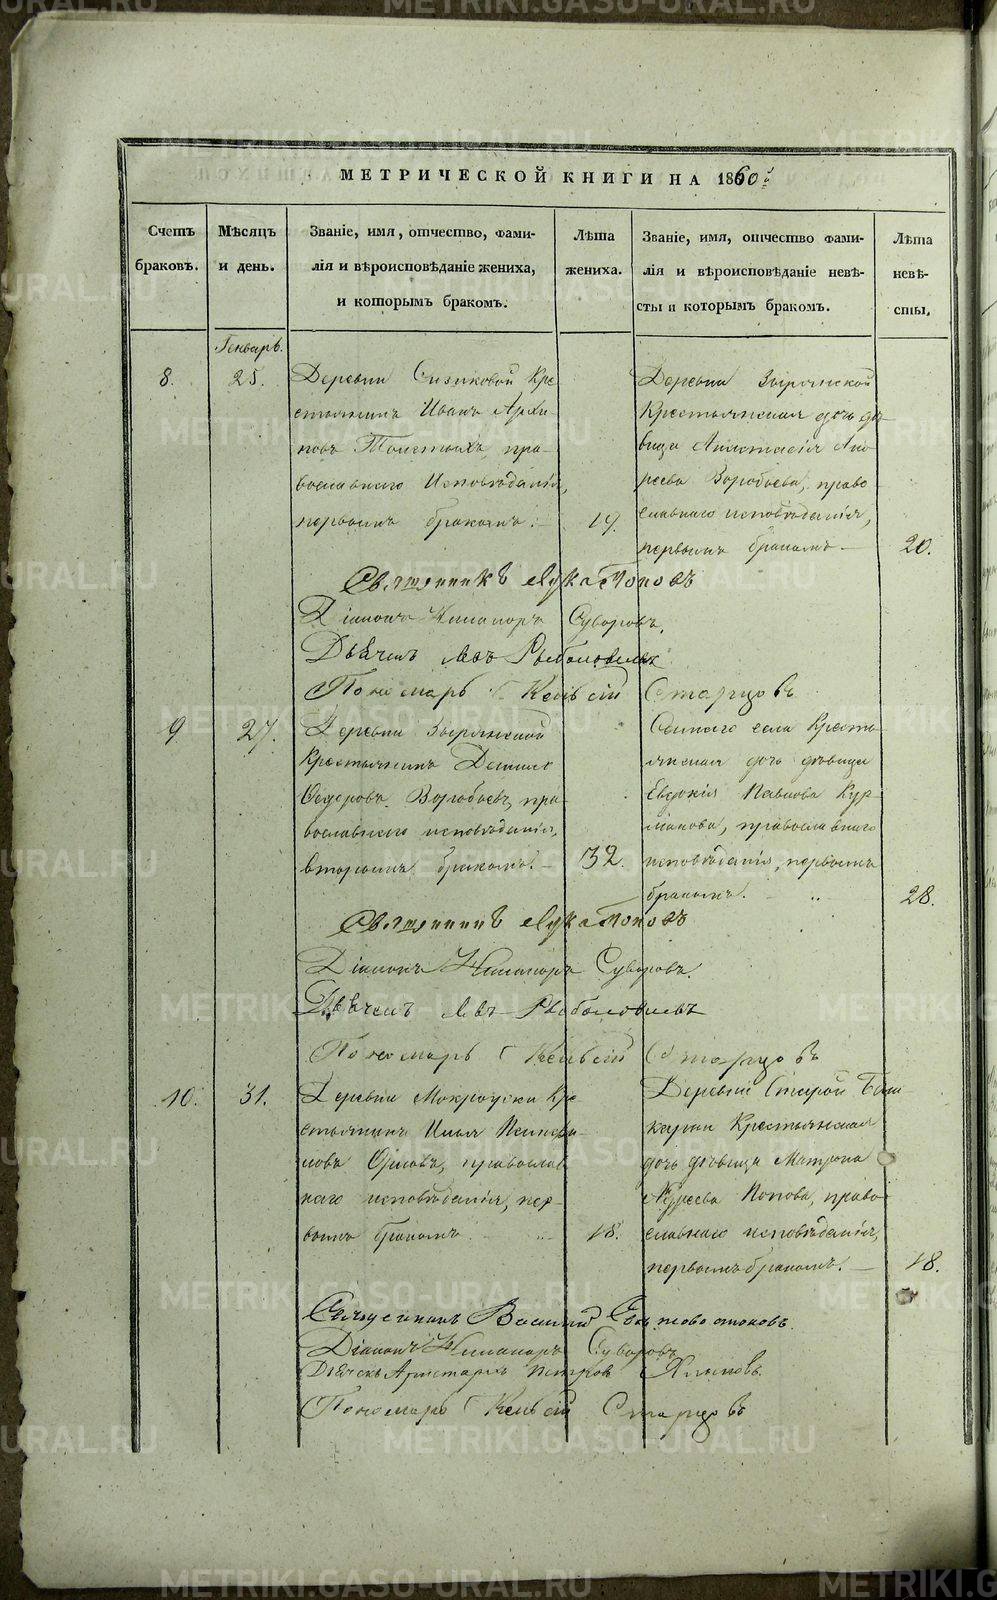 МЕТРИЧЕСКОЙ КНИГИ НА 1860й
Счетъ браковъ.
Мѣсяцъ и день.
Званіе, имя, отчество, фами-
лія и вѣроисповѣданіе жениха,
и которымъ бракомъ.
Лѣта жениха.
Званіе, имя, отчество фами-
лія и вѣроисповѣданіе невѣ-
сты и которымъ бракомъ.
Лѣта невѣ-
сты.
Генварь.
8.
25.
Деревни Сизиковой Кре
стьянинъ Иванъ Архи-
повъ Толстыхъ, пра-
вославнаго Исповѣданія,
первымъ бракомъ.
19.
Деревни Зырянской
Крестьянская дочь дѣ-
вица Анастасія Анд
реева Воробьева, право
славнаго исповѣданія,
первымъ бракомъ
20.
Священникъ Лука Поповъ
Діаконъ Никаноръ Суворовъ.
Дьячекъ Левъ
Пономарь Старцовъ
9
27.
Деревни Зырянской
Крестьянинъ
Ѳедоровъ Воробьевъ, пра-
вославнаго исповѣданія,
вторымъ бракомъ.
32.
села Кресть
янская дочь дѣвица
Евдокія Павлова Кур-
манова, православнаго
исповѣданія, первымъ
бракомъ.
28.
Священникъ Лука Поповъ
Діаконъ Никаноръ Суворовъ.
Дьячекъ Левъ
Пономарь Старцовъ
10.
31.
Деревни Мокроуски Кре
стьянинъ Илья
Орловъ, православ
наго исповѣданія, пер-
вымъ бракомъ
18.
Деревни Старой Баш
карки Крестьянская
дочь дѣвица Матрона
Попова, право
славнаго исповѣданія,
первымъ бракомъ.
18.
Священникъ Василій
Діаконъ Никаноръ Суворовъ
Дьячекъ Аристархъ Петровъ Хлыновъ.
Пономарь Старцовъ
METRIKI.GASO-URAL.RU